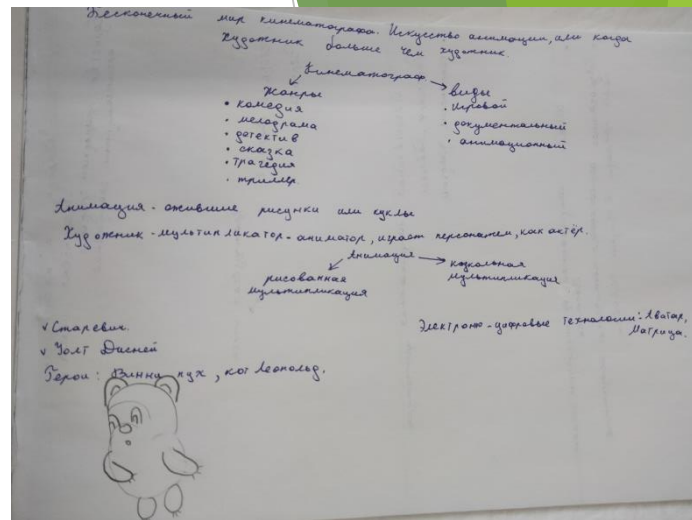 Бесконечный мир кинематографа. Искусство анимации, или когда
художник больше чем художник.
Кинематограф
жанры
виды
• комедия
• мелодрама
• детектив
• сказка
• трагедия
• триллер
• игровой
• документальный
• анимационный
Анимация - ожившие рисунки или куклы
Художник - мультипликатор - аниматор, играет персонажем, как актёр.
Анимация
рисованная
мультипликация
кукольная
мультипликация
v Старевич.
v Уолт Дисней
Герои: Винни пух, кот Леопольд.
Электроно - цифровые технологии: Аватар,
Матрица.